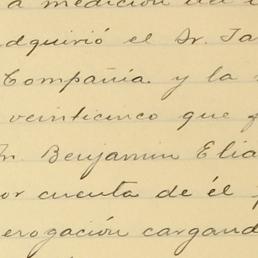 a medición del
adquirió el Sr. Ja
Compañía y la
veinticinco que
Sr. Benjamin Elia
por cuenta de él
erogación cargand